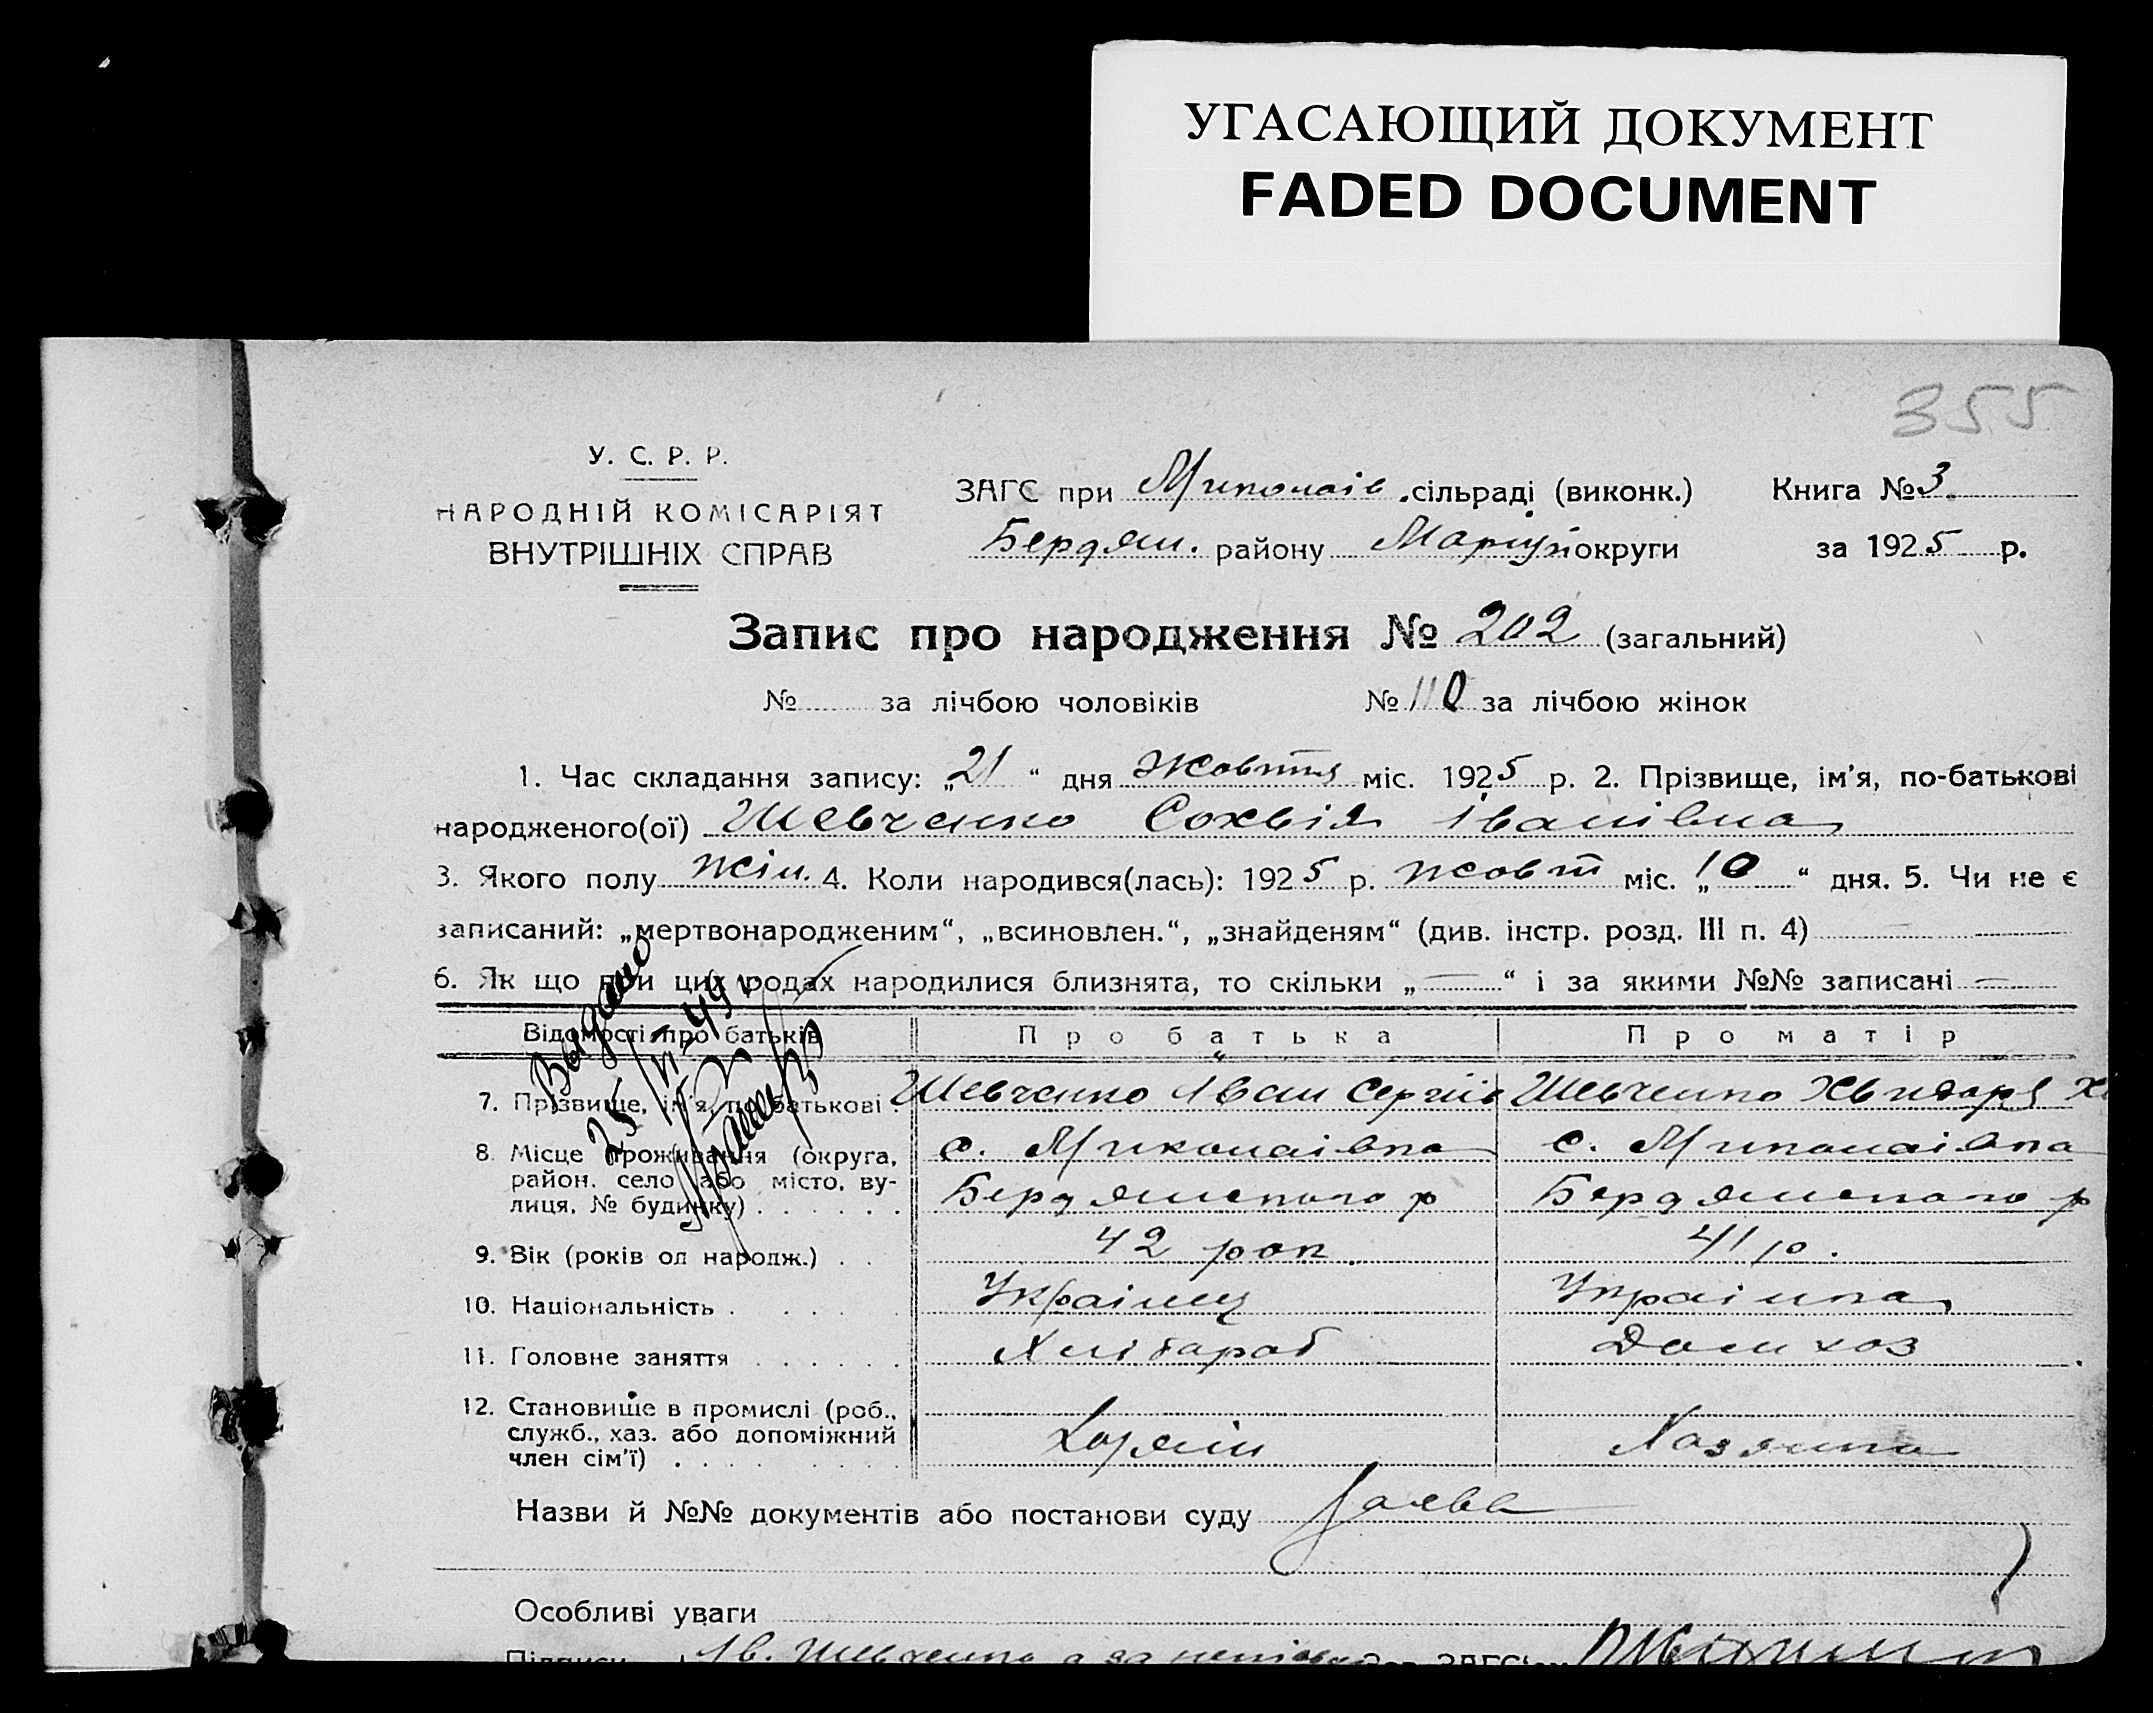 УГАСАЮЩИЙ ДОКУМЕНТ
FADED DOCUMENT
355
У. С. Р. Р.
НАРОДНІЙ КОМІСАРІЯТ
ВНУТРІШНІХ СПРАВ
ЗАГС при Миколаїв. сільраді (виконк.) Книга № 3
Бердян. району Маріуп округи за 1925 р.
Запис про народження № 202 (загальний)
№ за лічбою чоловіків № 110 за лічбою жінок
1. Час складання запису: „21“ дня Жовтня міс. 1925 р. 2. Прізвище, ім'я, по-батькові
народженого(ої) Шевченко Сохвія Іванівна
3. Якого полу жін. 4. Коли народився(лась): 1925 р. жовт міс. „10“ дня. 5. Чи не є
записаний: „мертвонародженим“, „всиновлен.“, „знайденям“ (див. інстр. розд. III п. 4)
6. Як що при цих родах народилися близнята, то скільки „—“ і за якими №№ записані —
Видано
25
Відомості про батьків Про батька Про матір
7. Прізвище, ім'я, по батькові. Шевченко Іван Сергіїв Шевченко Хвидора
8. Місце проживання (округа, с. Миколаівка с. Миколаівка
район. село або місто, ву- Бердянського р Бердянського р
лиця, № будинку)
9. Вік (років од народж.) 42 рок. 41 р.
10. Національність Українец Українка
11. Головне заняття Хлібороб Дом хоз
12. Становище в промислі (роб.,
служб., хаз. або допоміжний Хозяїн Хазяйка
член сім'ї)
Назви й №№ документів або постанови суду Заява
Особливі уваги
Підписи Ів. Шевченко а за ЗАГС'ом